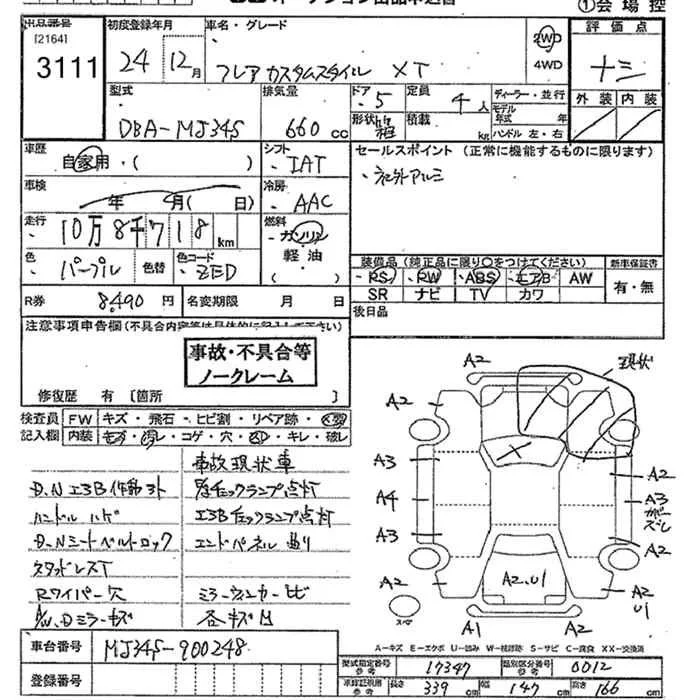 ①会場控
出品番号
[2164]
3111
初度登録年月
24年12月
車名・グレード
フレア カスタムスタイル XT
2WD
4WD
評価点
外装 内装
型式
DBA-MJ34S
排気量
660cc
ドア
5
形状
箱
定員
4人
積載
kg
ディーラー・並行
モデル年式 年
ハンドル 左・右
車歴
自家用・( )
シフト
IAT
車検
年 月( 日)
冷房
AAC
セールスポイント (正常に機能するものに限ります)
・社外アルミ
走行
10万8千718km
燃料
ガソリン
軽油
色
パープル
色替
色コード
ZED
装備品(純正品に限り○をつけてください)
PS PW ABS エアB AW
SR ナビ TV カワ
新車保証書
有・無
R券
8490円
名変期限 月 日
後日品
注意事項申告欄(不具合内容等は具体的に記入して下さい)
事故・不具合等
ノークレーム
修復歴 有 [箇所 ]
検査員記入欄
FW キズ・飛石・ヒビ割・リペア跡・
内装 ・コゲ・穴・・キレ・破レ
事故現状車
D.N エアB作動外
チェックランプ点灯
ハンドルハゲ
エアBチェックランプ点灯
D.Nシートベルトロック
エンドパネル曲り
スタッドレスT
Rワイパー欠
ミラーウィンカーヒビ
ミラーキズ
各キズ凹
現状
A2
A2
A2
A3
A2
A4
A3
カバーズレ
A3
A2
A2
A2
U1
A2.U1
スペア
A1
A2
A-キズ E-エクボ U-凹み W-補修跡 S-サビ C-腐食 XX-交換済
車台番号
MJ34S-900248
登録番号
型式指定番号
参考
17347
類別区分番号
参考
0012
車検証規格
参考
長さ 339cm 幅 147cm 高さ 166cm